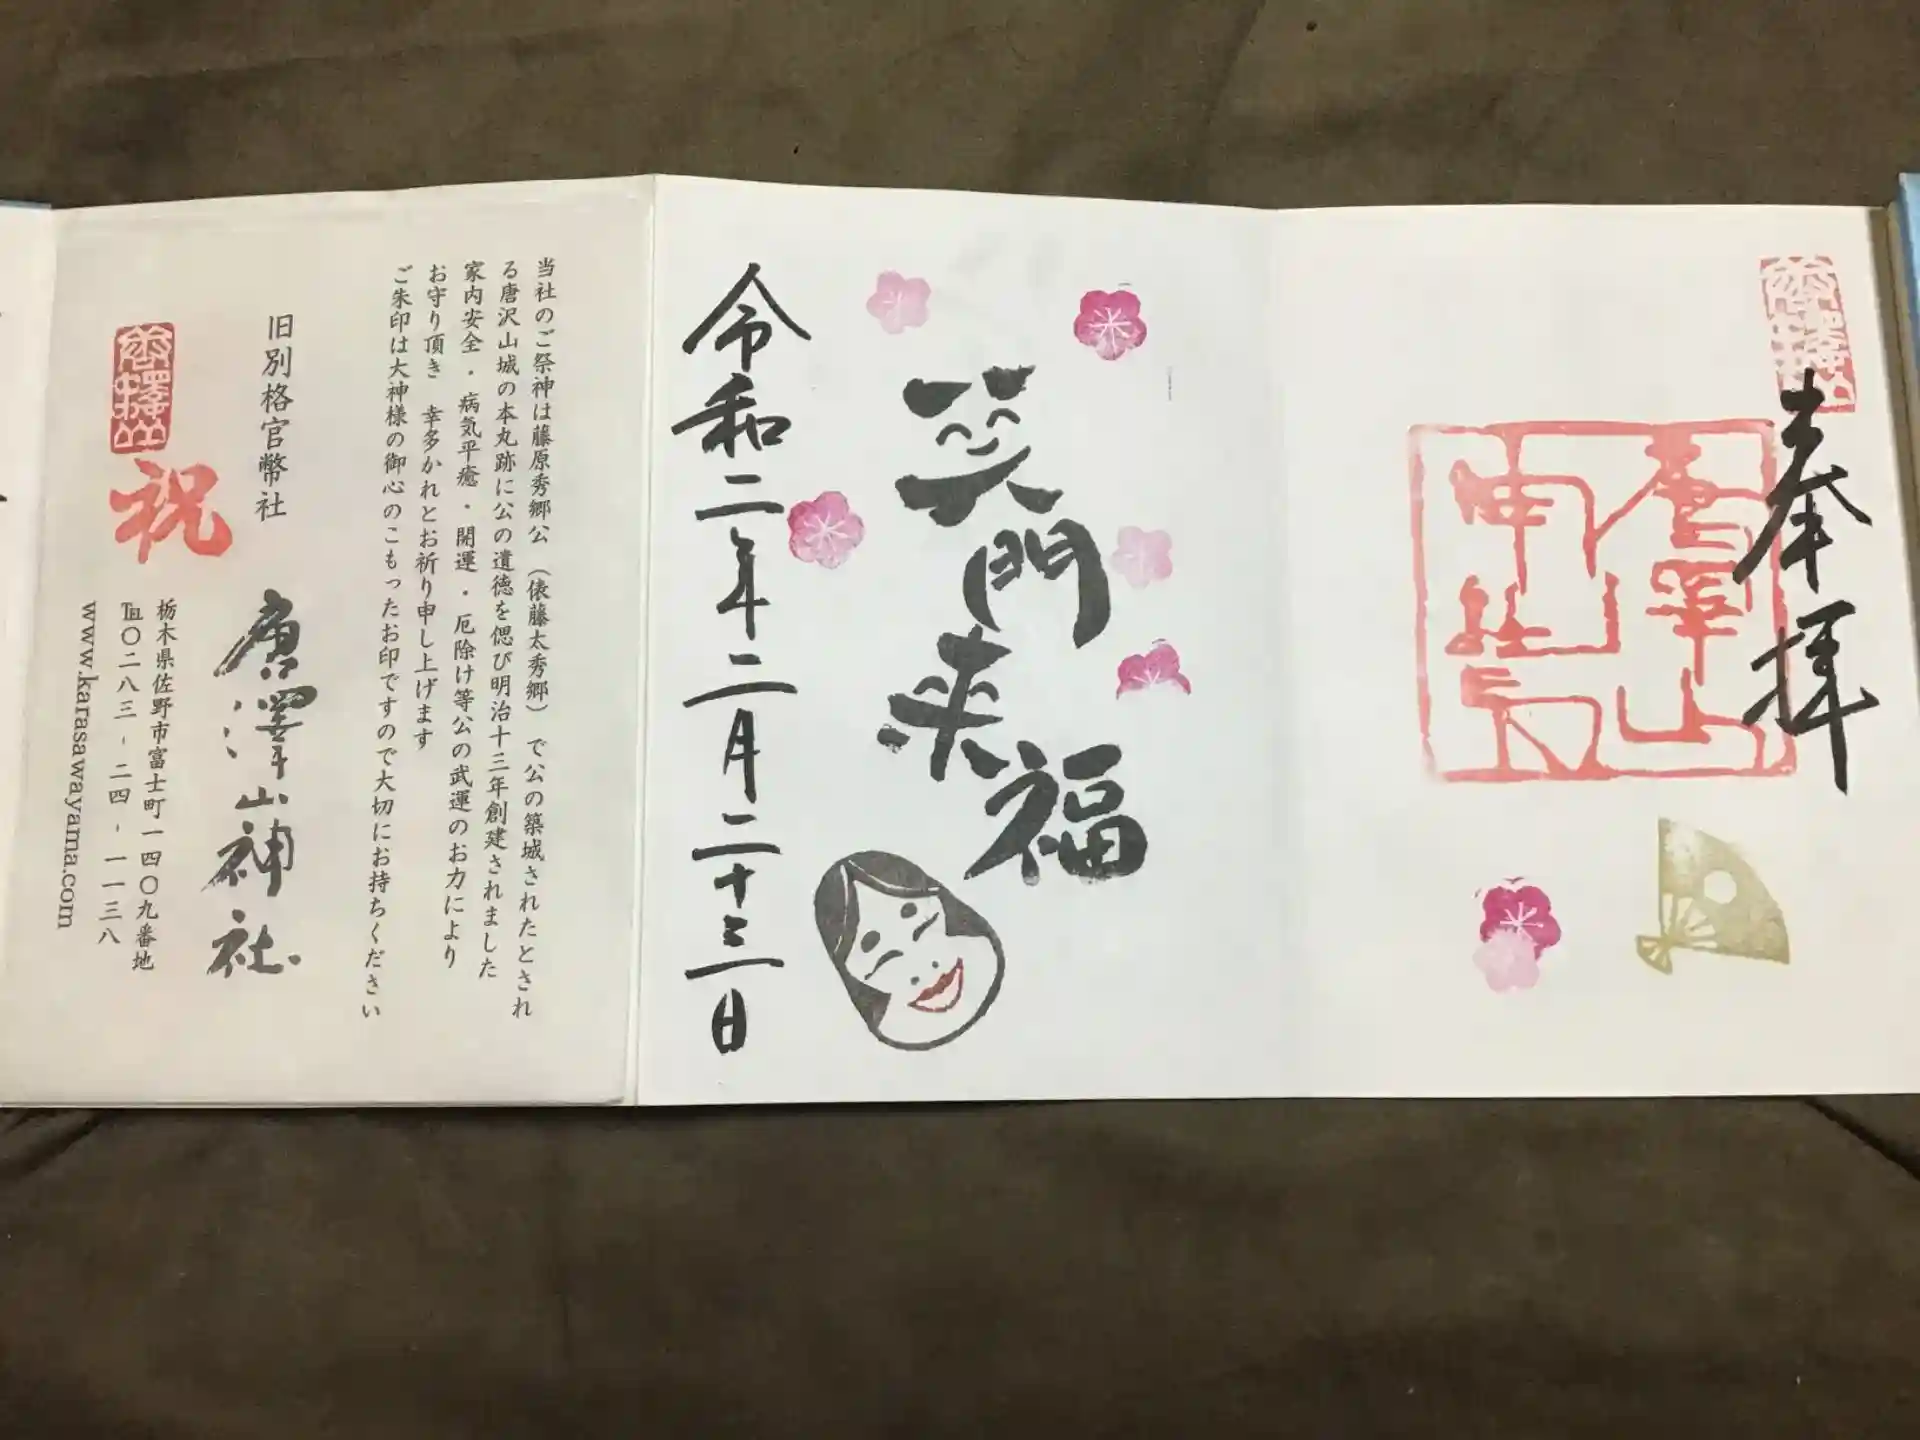 奉拝
唐澤山
神社
笑門
来福
令和二年二月二十三日
当社のご祭神は藤原秀郷公（俵藤太秀郷）で公の築城されたとされ
る唐沢山城の本丸跡に公の遺徳を偲び明治十三年創建されました
家内安全・病気平癒・開運・厄除け等公の武運のお力により
お守り頂き 幸多かれとお祈り申し上げます
ご朱印は大神様の御心のこもったお印ですので大切にお持ちください
旧別格官幣社
唐澤山神社
祝
栃木県佐野市富士町一四〇九番地
℡〇二八三-二四-一一三八
www.karasawayama.com